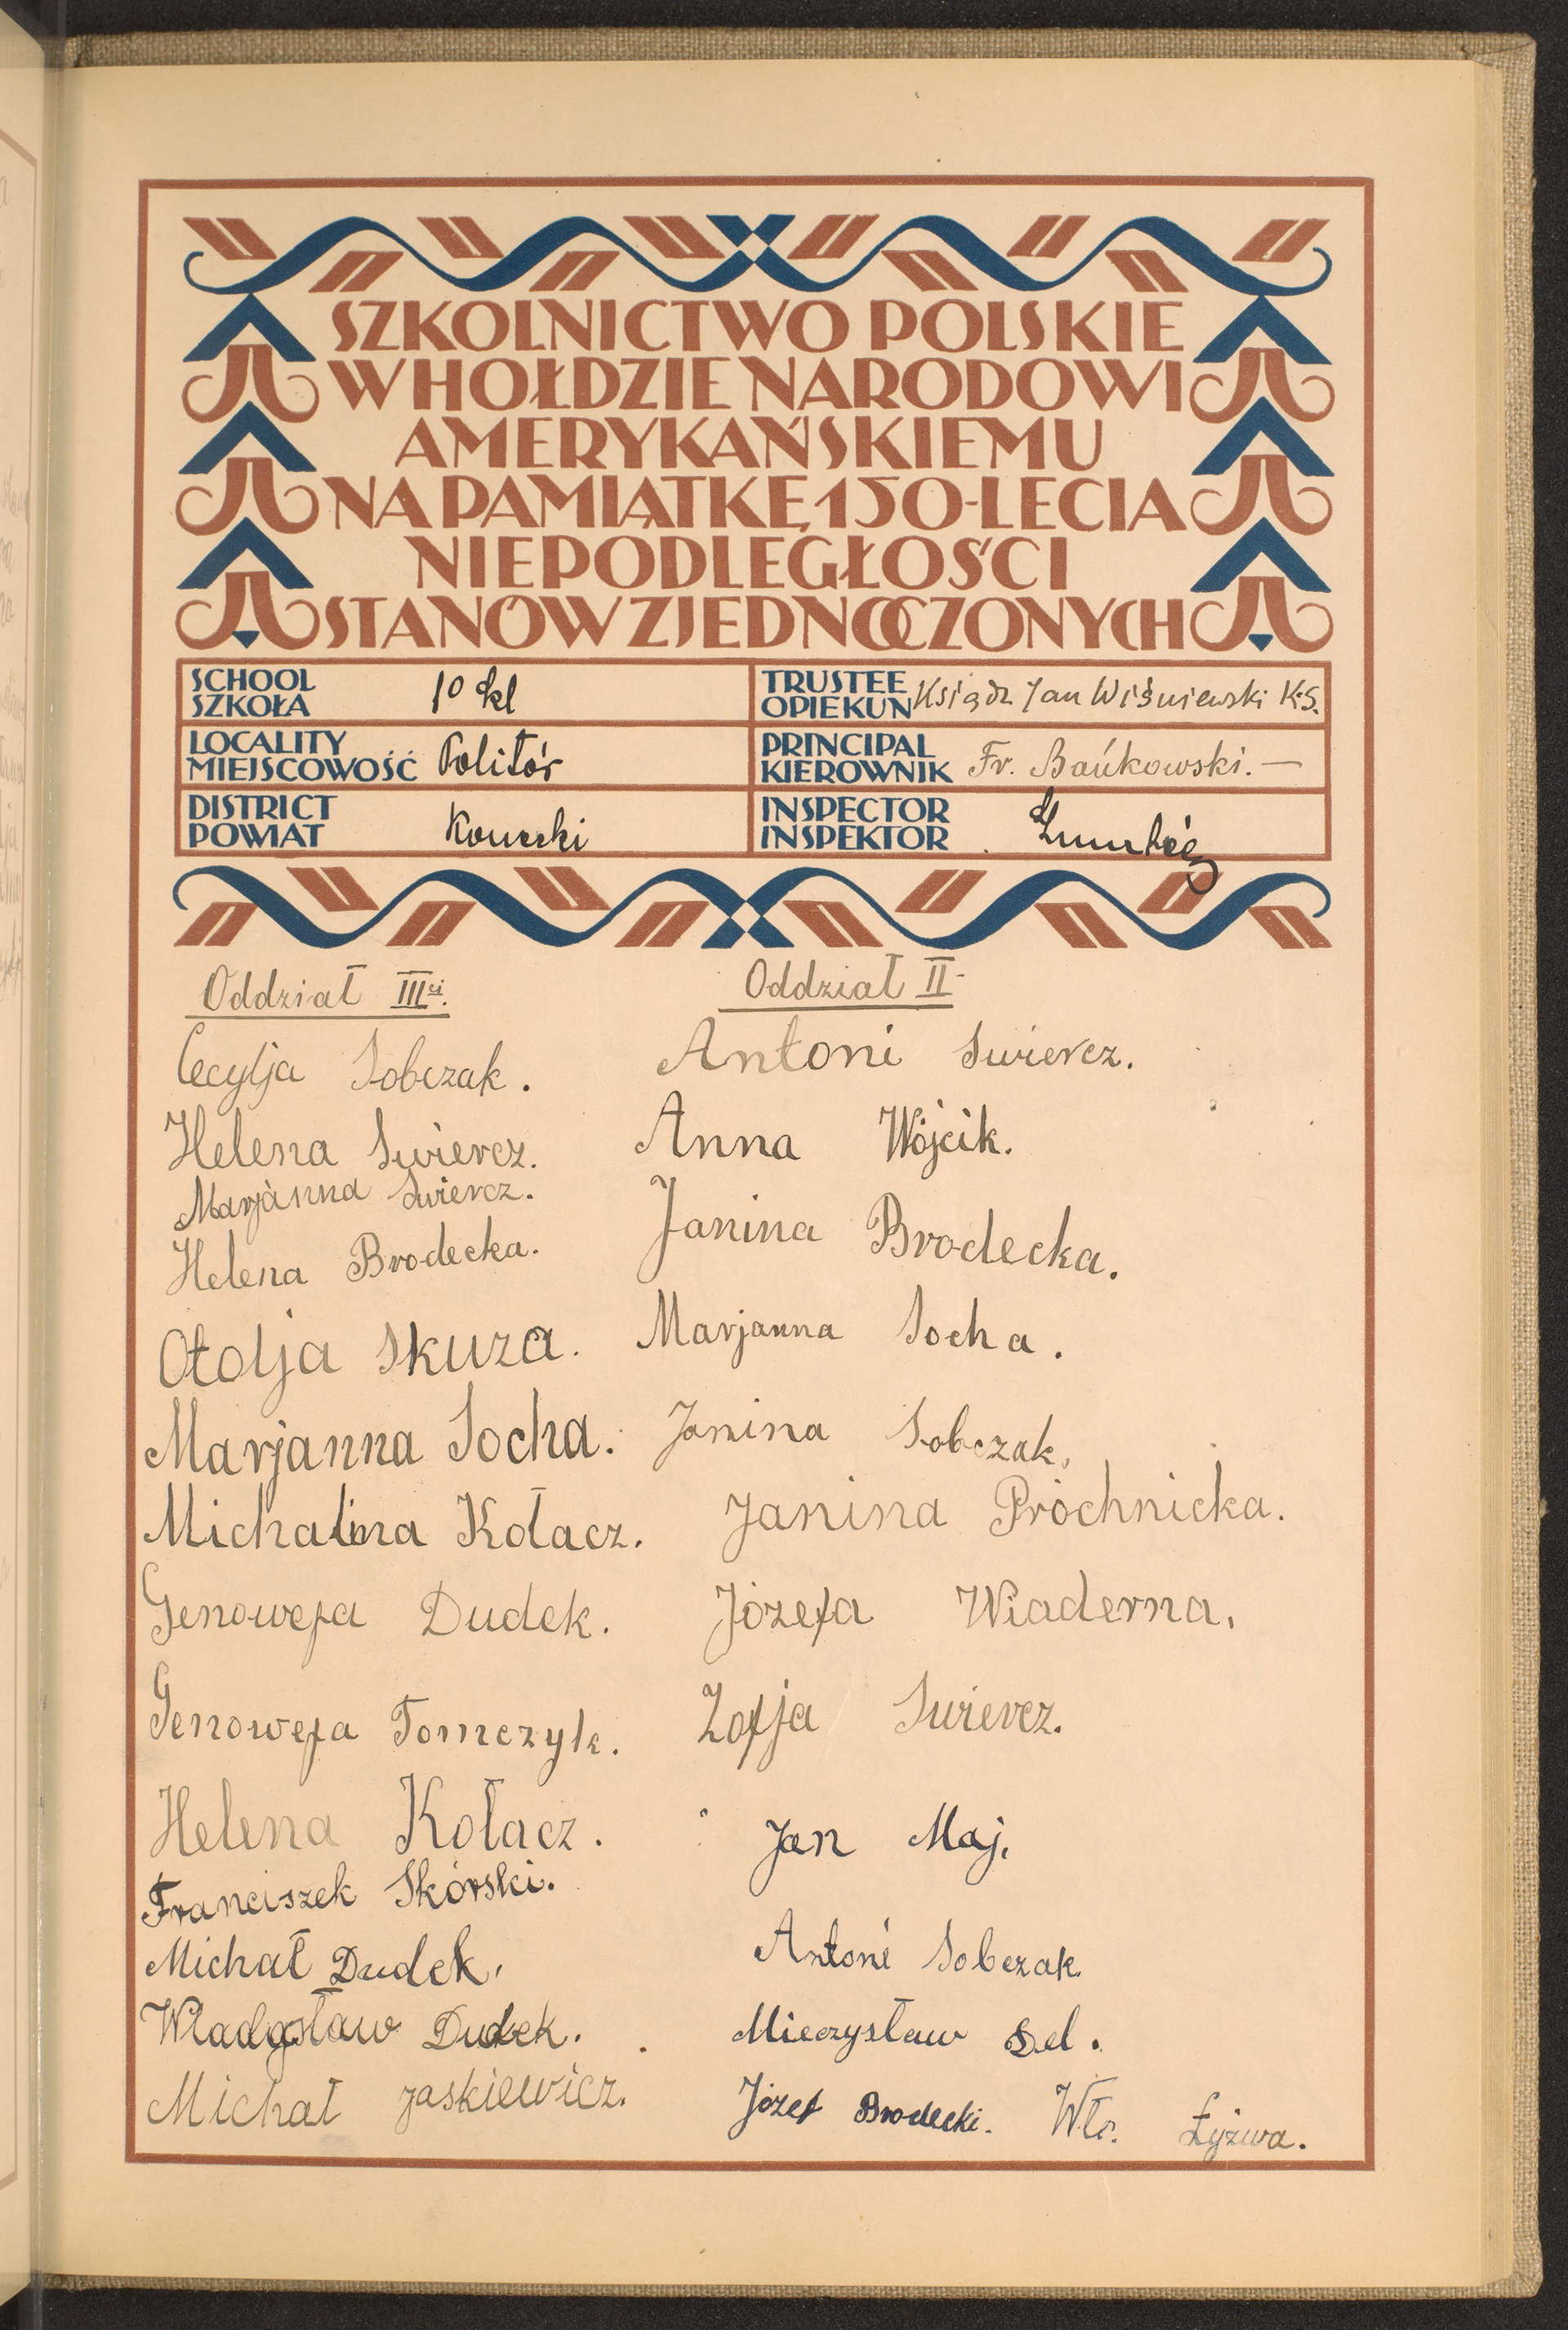 SZKOLNICTWO POLSKIE
W HOŁDZIE NARODOWI
AMERYKAŃSKIEMU
NA PAMIĄTKĘ 150-LECIA
NIEPODLEGŁOŚCI
STANÓW ZJEDNOCZONYCH
SCHOOL
SZKOŁA
10 kl
TRUSTEE
OPIEKUN
Ksiądz Jan Wiśniewski K.S.
LOCALITY
MIEJSCOWOŚĆ
Politór
PRINCIPAL
KIEROWNIK
Fr. Bańkowski.—
DISTRICT
POWIAT
Konecki
INSPECTOR
INSPEKTOR
Oddział IIIci.
Cecylja Sobczak.
Helena Swiercz.
Marjanna Swiercz.
Helena Brodecka.
Otolja Skuza.
Marjanna Socha.
Michalina Kołacz.
Genowefa Dudek.
Genowefa Tomczyk.
Helena Kołacz.
Franciszek Skórski.
Michał Dudek.
Władysław Dudek.
Michał Jaskiewicz.
Oddział II
Antoni Swiercz.
Anna Wójcik.
Janina Brodecka.
Marjanna Socha.
Janina Sobczak.
Janina Próchnicka.
Józefa Wiaderna.
Zofja Swiercz.
Jan Maj.
Antoni Sobczak.
Mieczysław Sel.
Józef Brodecki. Wł. Łyżwa.